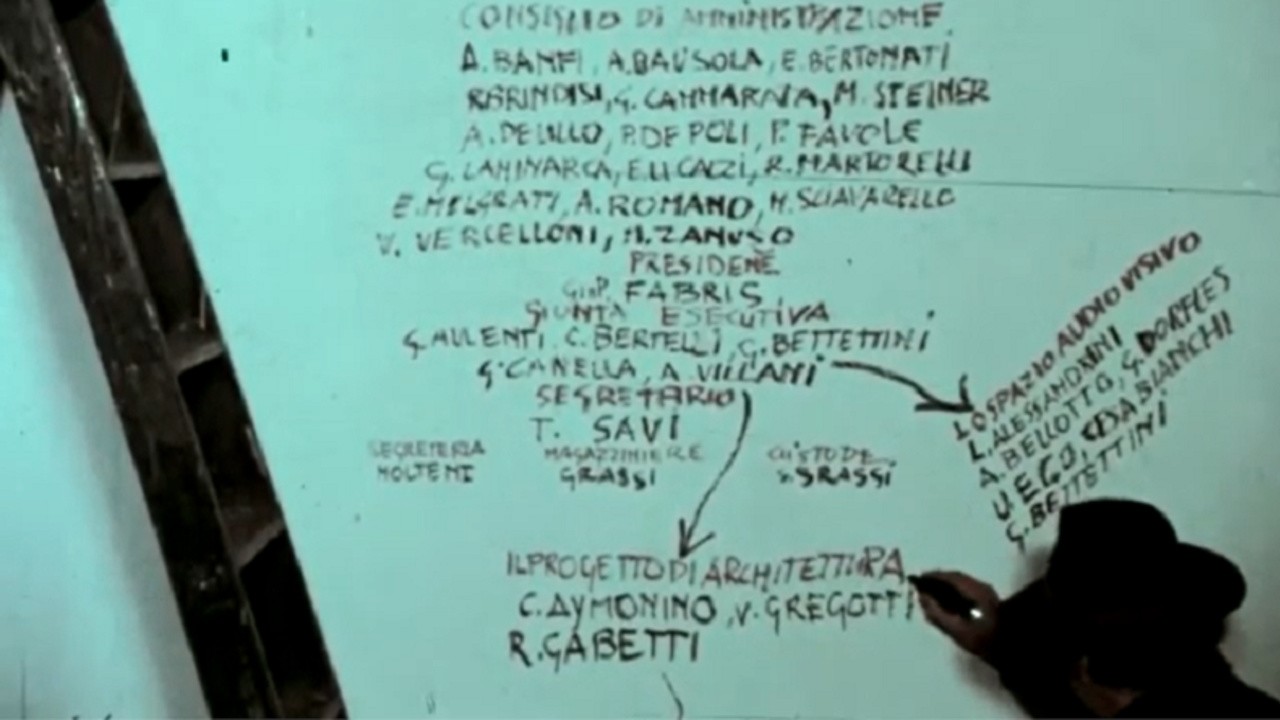 CONSIGLIO DI AMMINISTRAZIONE
A. BANFI, A. BAUSOLA, E. BERTONATI
R. BRINDISI, G. CAMMARATA, M. STEINER
A. DE LILLO, P. DE POLI, P. FAVOLE
G. LAMMARCA, E. LI CALZI, R. MARTORELLI
E. MELGRATI, A. ROMANO, M. SCIAVARELLO
V. VERCELLONI, M. ZANUSO
PRESIDENE
GIUP. FABRIS
GIUNTA ESECUTIVA
G. AULENTI. C. BERTELLI, G. BETTETTINI
G. CANELLA, A. VILLANI
SEGRETARIO
T. SAVI
SEGRETERIA MAGAZZINIERE CUSTODE
MOLTENI GRASSI GRASSI
LO SPAZIO AUDIOVISIVO
L. ALESSANDRINI
A. BELLOTTO, G. DORFLES
U. ECO, CASABIANCHI
G. BETTETTINI
IL PROGETTO DI ARCHITETTURA
C. AYMONINO, V. GREGOTTI
R. GABETTI